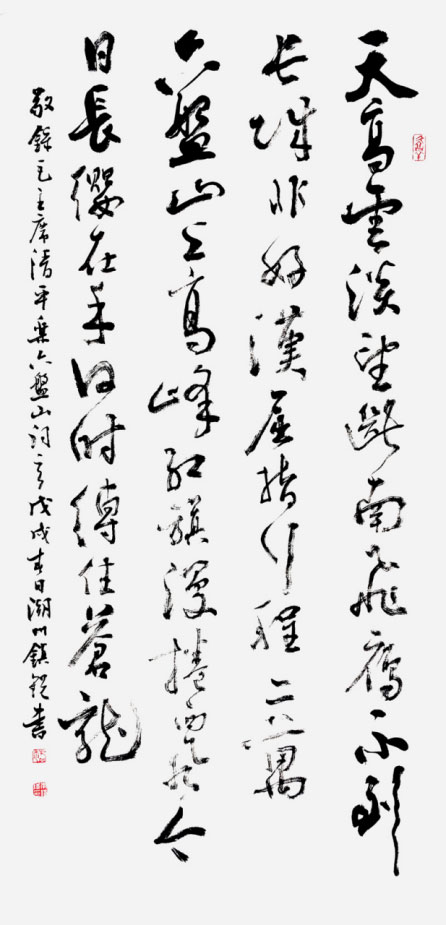 天高雲淡望斷南飛雁不到
長城非好漢屈指行程二萬
六盤山上高峰紅旗漫捲西風今
日長纓在手何時縛住蒼龍
敬錄毛主席清平樂六盤山詞一首戊戌春日湖州鎮書